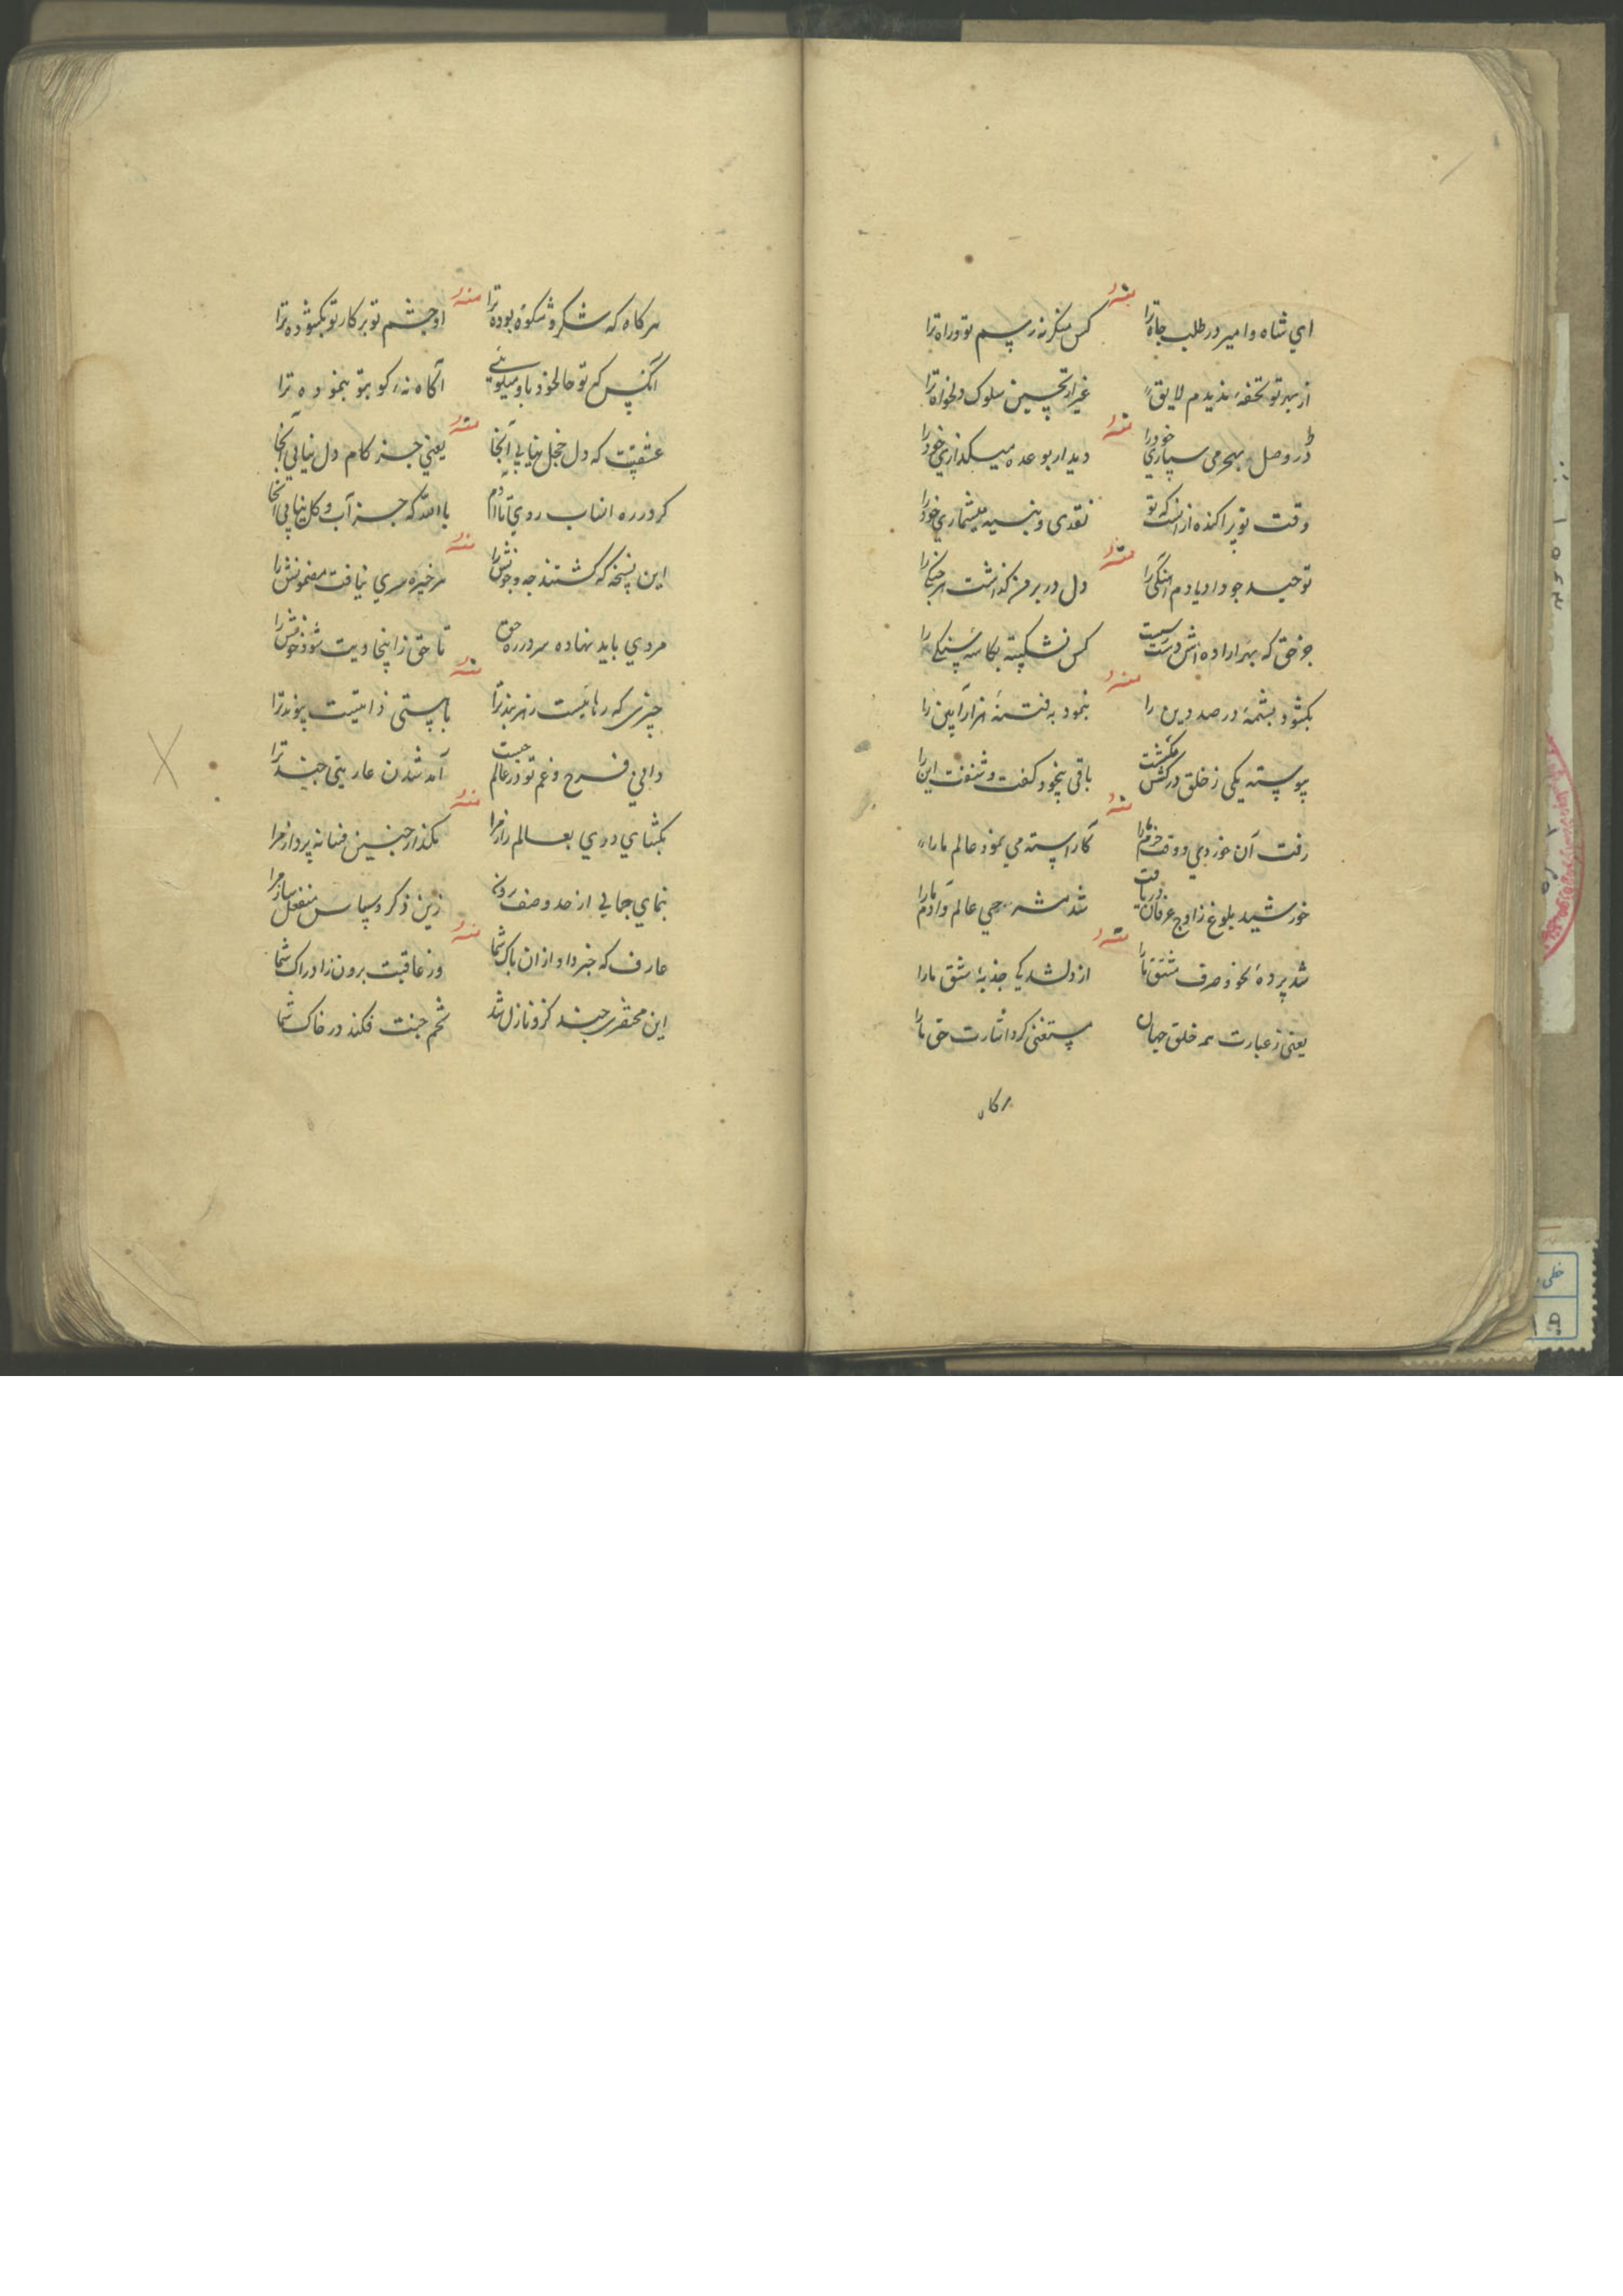 منه
ای شاه و امیر در طلب جاه ترا کس منکر نه ز رسم تو و راه ترا
از بهر تو تحفه ندیدم لایق غیر از تحسین سلوک دلخواه ترا
منه
در وصل بهجر می سپاری خود را دیدار بوعده میگذاری خود را
وقت تو پراکنده از آنست که تو نقدی و بنسیه میشماری خود را
منه
توحید چو داد یادم آهنگی را دل در بر من گذاشت هر جنگی را
جز حق که بهر اراده اش دست کس نشکسته بکاسه سنگی را
منه
بکشود بشمه در صد دین را بنمود به فتنه هزار آیین را
پیوسته یکی ز خلق در کش مکشست باقی بخود گفت و شنفت این را
منه
رفت آن خوردی و وقت خرم ما را کاراسته می نمود عالم ما را
خورشید بلوغ ز اوج عرفان دریافت شد حی عالم و آدم ما را
منه
شد پرده نحو و صرف مشتق ما را از دل شد کی جذبه مشق ما را
یعنی ز عبارت همه خلق جهان مستغنی کرد اشارت حق ما را
هرگاه
منه
هرگاه که شکر و شکوه بوده ترا او چشم تو بر کار تو بکشوده ترا
آنکس که تو حال خود باو میگویی آگاه نه کو بتو بنموده ترا
منه
عشقست که دل خجل نیایی آنجا یعنی جز کام دل نیایی آنجا
گر در ره انساب روی تا آدم باالله که جز آب و گل نیایی آنجا
منه
این نسخه که گشتند چه و چونش را هر خیره سری نیافت مضمونش را
مردی باید نهاده سر در ره حق تا حق ز اینجا دیت شود خونش را
منه
چیزی که رهانیست ز هر بند ترا با هستی ذاتیست پیوند ترا
دانی فرح و غم تو در عالم چیست آمد شدن عاریتی چند ترا
منه
بگشای دری بعالم راز مرا مگذار چنین فسانه پرداز مرا
بنمای جمالی از حد وصف برون زین ذکر و سپاس منفعل ساز مرا
منه
عارف که خبر داد از آن پاک شما وز عاقبت برون ز ادراک شما
این محتضری چند کزو نازل شد تخم جنت فکند در خاک شما